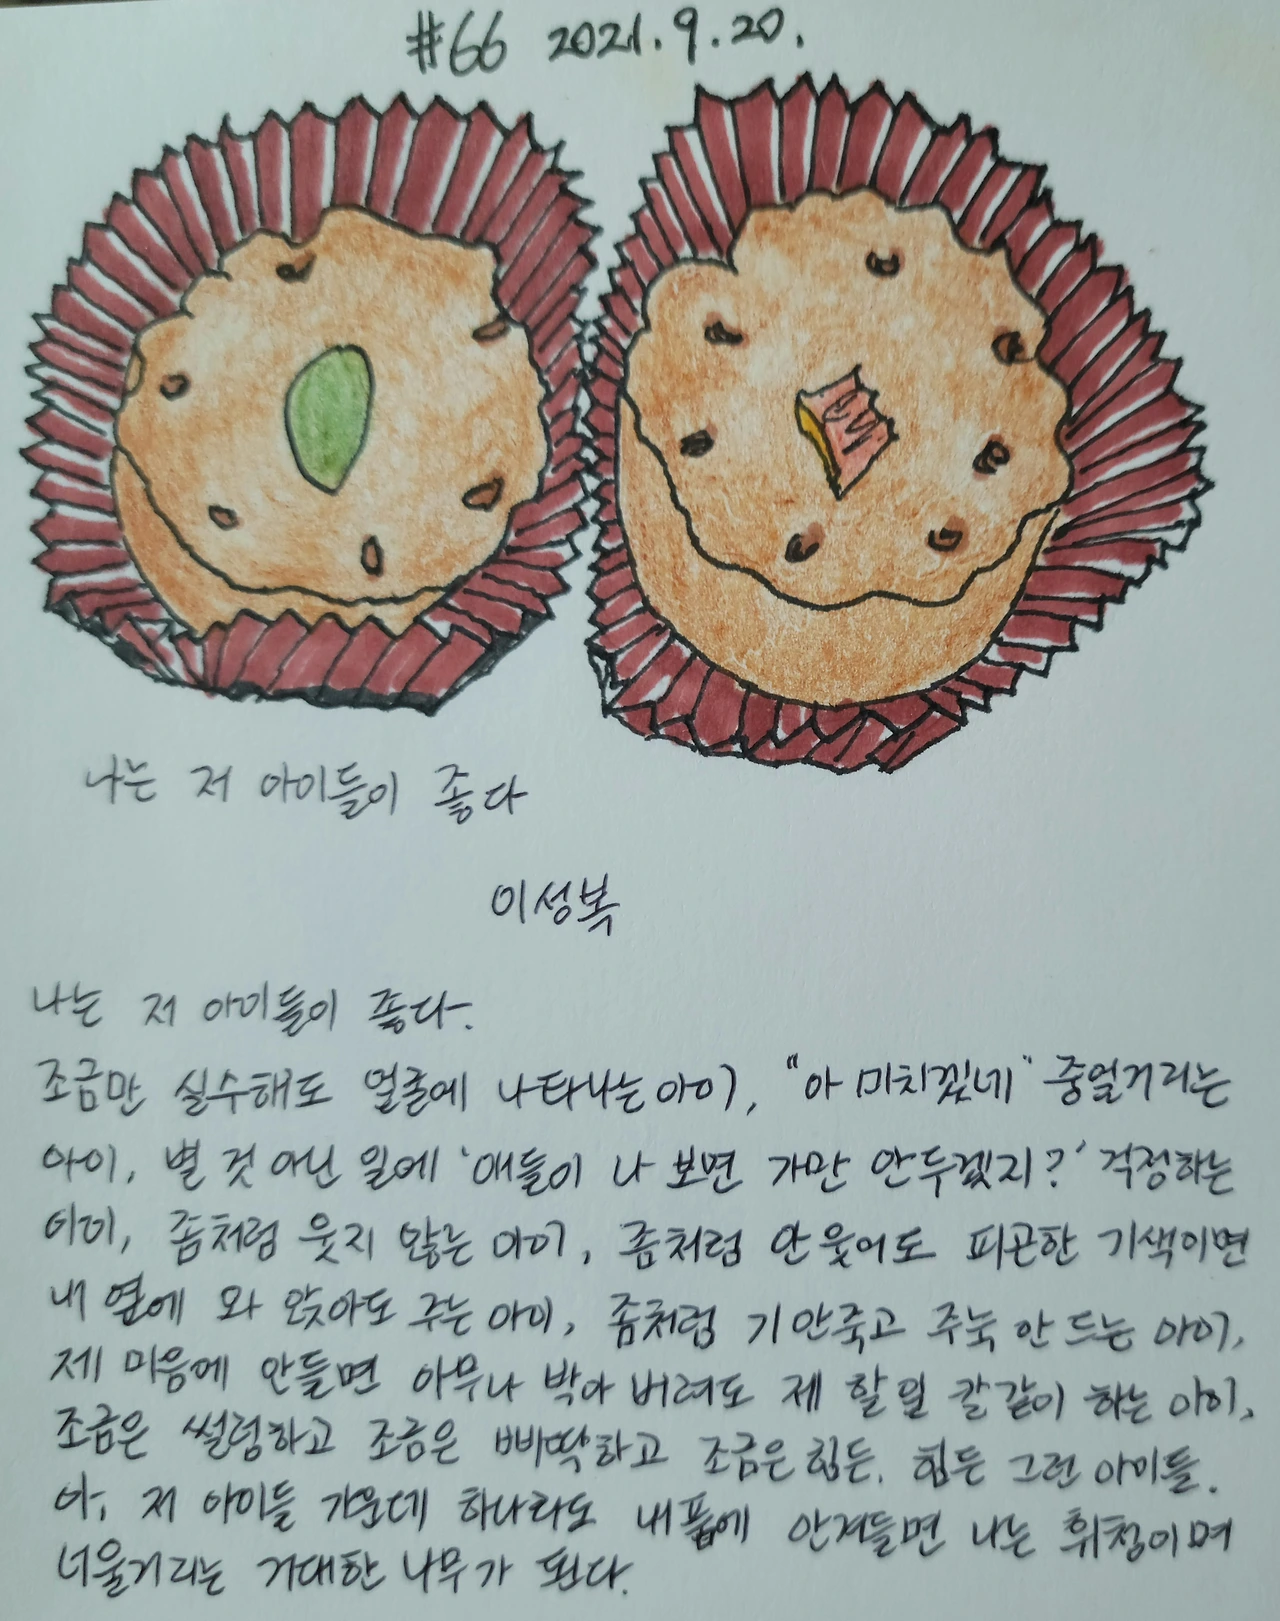 #66 2021.9.20.
나는 저 아이들이 좋다
이성복
나는 저 아이들이 좋다.
조금만 실수해도 얼굴에 나타나는 아이, "아 미치겠네" 중얼거리는
아이, 별 것 아닌 일에 '애들이 나 보면 가만 안두겠지?' 걱정하는
아이, 좀처럼 웃지 않는 아이, 좀처럼 안 웃어도 피곤한 기색이면
내 옆에 와 앉아도 주는 아이, 좀처럼 기 안죽고 주눅 안 드는 아이,
제 마음에 안들면 아무나 박아 버려도 제 할 일 칼같이 하는 아이,
조금은 썰렁하고 조금은 삐딱하고 조금은 힘든, 힘든 그런 아이들.
아, 저 아이들 가운데 하나라도 내 품에 안겨들면 나는 휘청이며
너울거리는 거대한 나무가 된다.